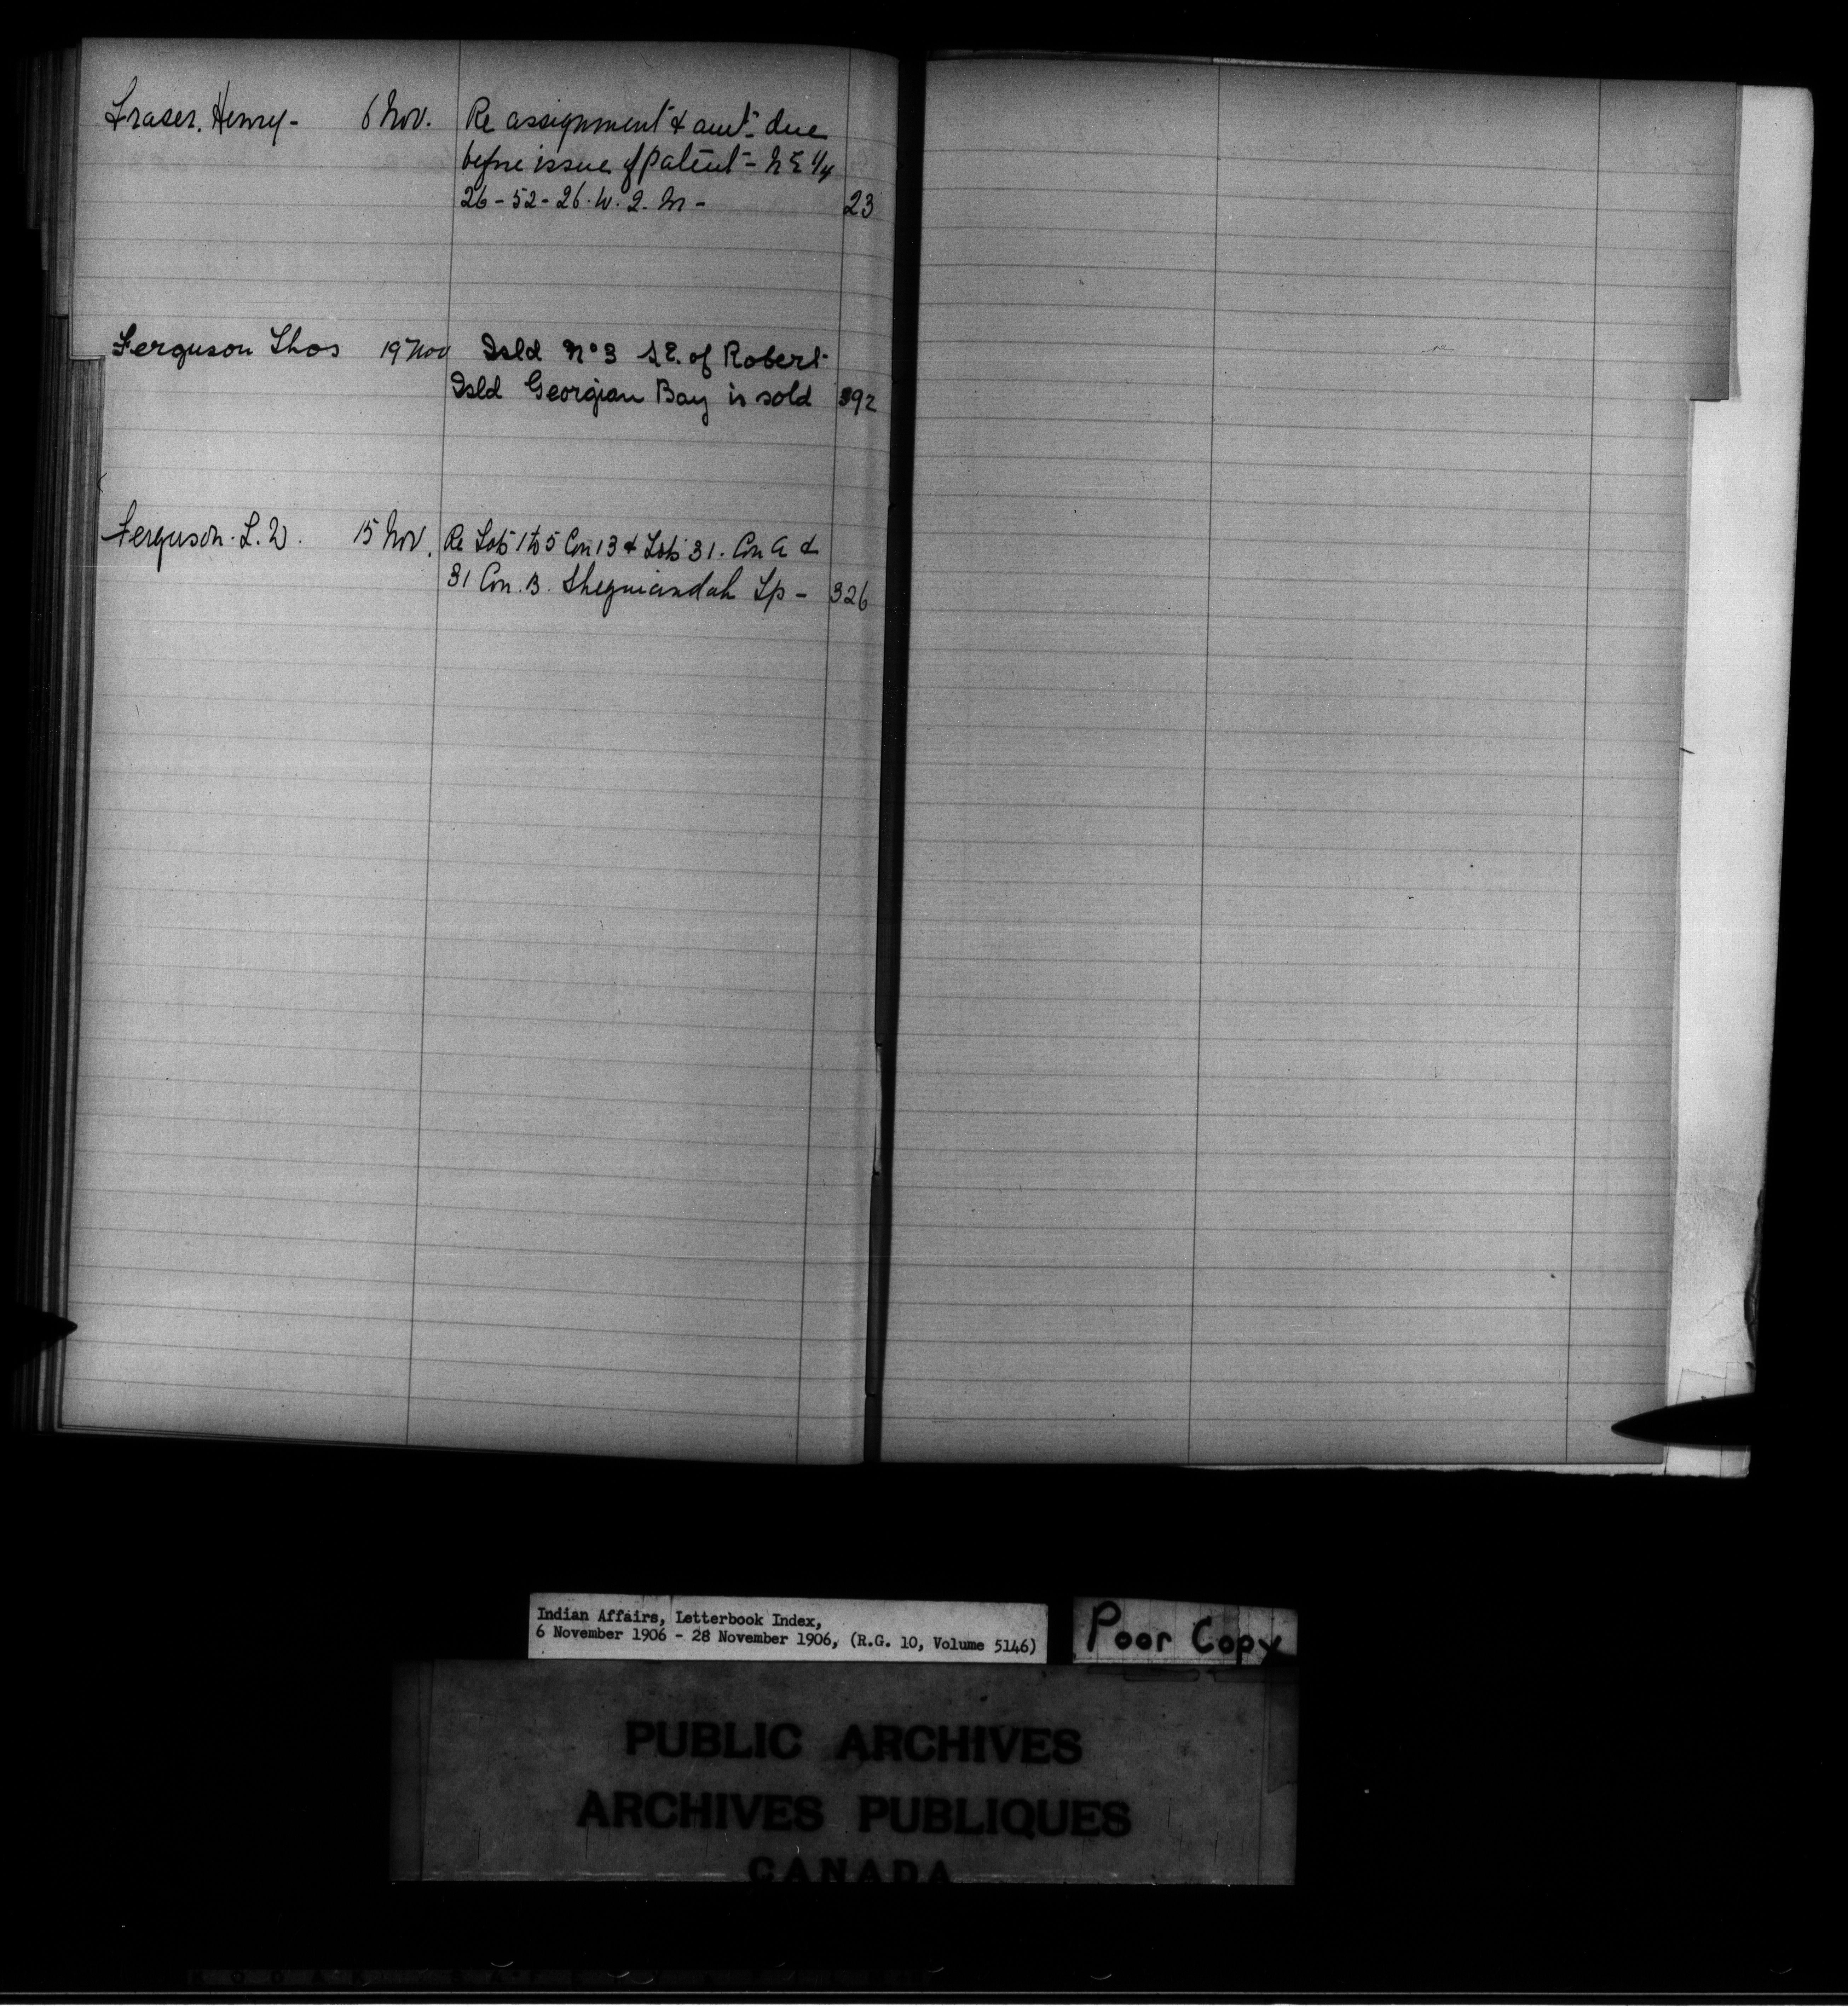 Fraser, Henry - 6 Nov. Re assignment & amt. due
before issue of patent - N E 1/4
26 - 52 - 26. W. 2. M - 23
Ferguson Thos 19 Nov Isld No 3 S E. of Robert
Isld Georgian Bay is sold 392
Ferguson. L. W. 15 Nov. Re Lots 1 to 5 Con 13 & Lots 31. Con A &
31 Con. B. Sheguiandah Tp - 326
Indian Affairs, Letterbook Index,
6 November 1906 - 28 November 1906, (R.G. 10, Volume 5146)
Poor Copy
PUBLIC ARCHIVES
ARCHIVES PUBLIQUES
CANADA